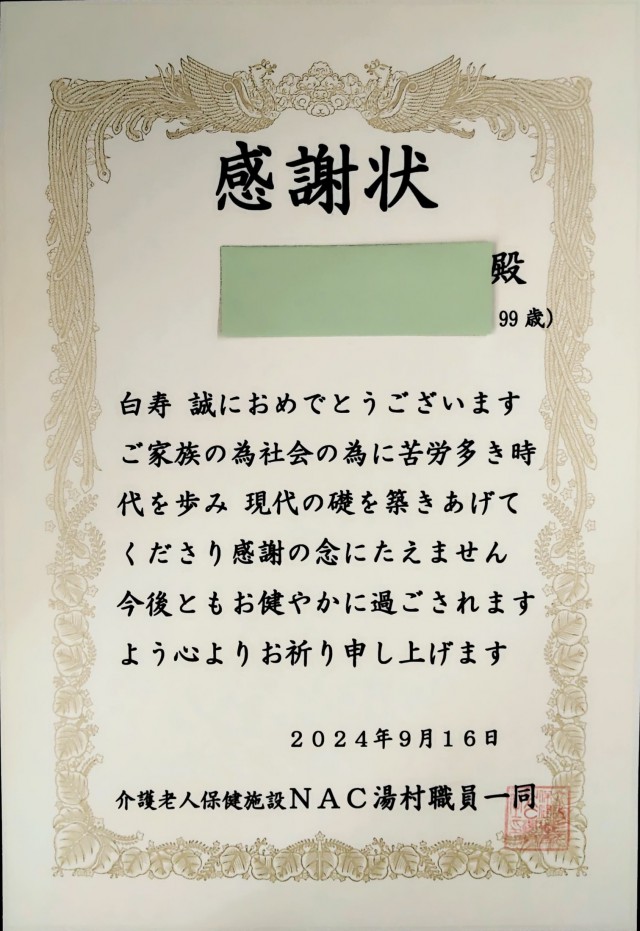 感謝状
殿
99歳)
白寿 誠におめでとうございます
ご家族の為社会の為に苦労多き時
代を歩み 現代の礎を築きあげて
くださり感謝の念にたえません
今後ともお健やかに過ごされます
よう心よりお祈り申し上げます
2024年9月16日
介護老人保健施設NAC湯村職員一同